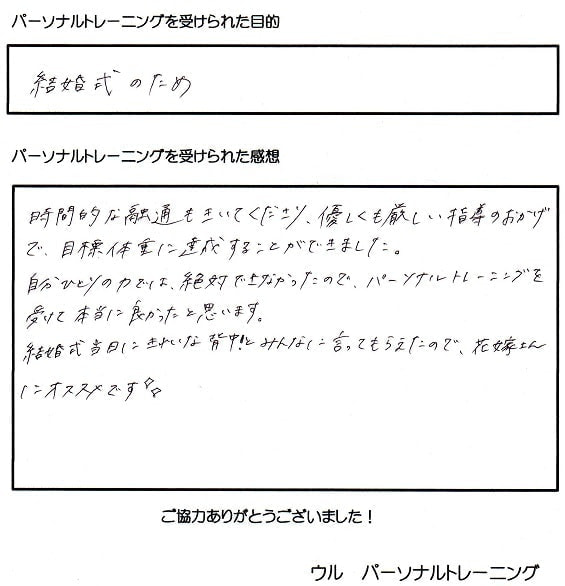 パーソナルトレーニングを受けられた目的
結婚式のため
パーソナルトレーニングを受けられた感想
時間的な融通もきいてくださり、優しくも厳しい指導のおかげ
で、目標体重に達成することができました。
自分ひとりの力では、絶対できなかったので、パーソナルトレーニングを
受けて本当に良かったと思います。
結婚式当日にきれいな背中!とみんなに言ってもらえたので、花嫁さん
にオススメです
ご協力ありがとうございました！
ウル パーソナルトレーニング